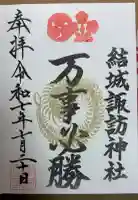 結城諏訪神社
万事必勝
奉拝 令和七年十月二十日